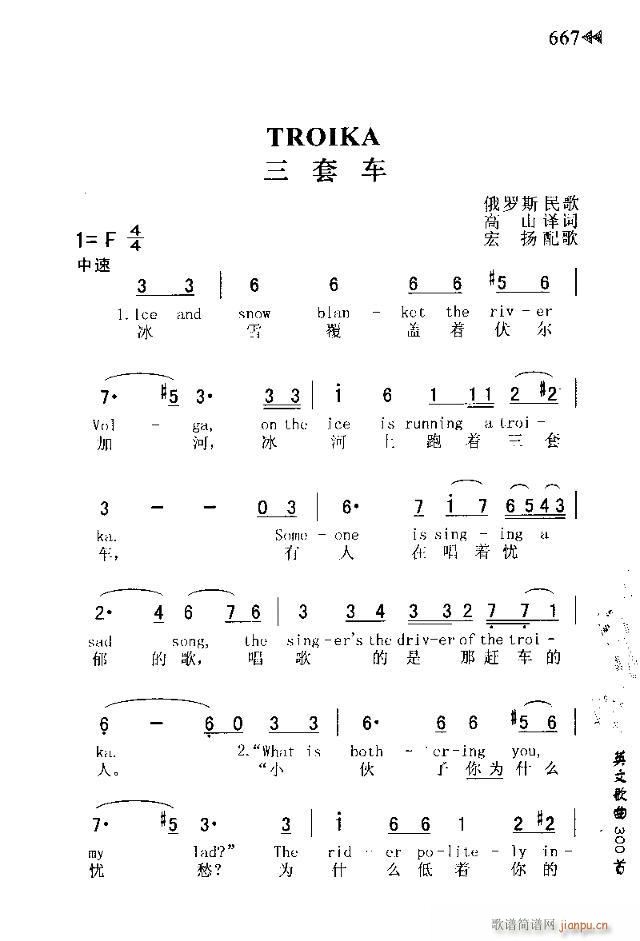 667
TROIKA
三套车
俄罗斯民歌
高山译词
宏扬配歌
1=F 4/4
中速
3 3 | 6 6 6 6 #5 6 |
1. Ice and snow blan - ket the riv - er
冰 雪 覆 盖着伏尔
7· #5 3· 3 3 | i 6 1 1 1 2 #2 |
Vol - ga, on the ice is running a troi -
加 河, 冰 河上跑着三套
3 - - 0 3 | 6· 7 i 7 6 5 4 3 |
ka. Some - one is sing - ing a
车, 有人 在唱着忧
2· 4 6 7 6 | 3 3 4 3 3 2 7 7 1 |
sad song, the sing - er's the driv - er of the troi -
郁 的歌, 唱歌 的是 那赶车的
6 - 6 0 3 3 | 6· 6 6 #5 6 |
ka. 2. "What is both - ering you,
人。 "小伙子你为什么
7· #5 3· 3 | i 6 6 1 2 #2 |
my lad?" The rid - er po - lite - ly in -
忧 愁? 为什么低着你的
英文歌曲300首
歌谱简谱网
jianpu.cn